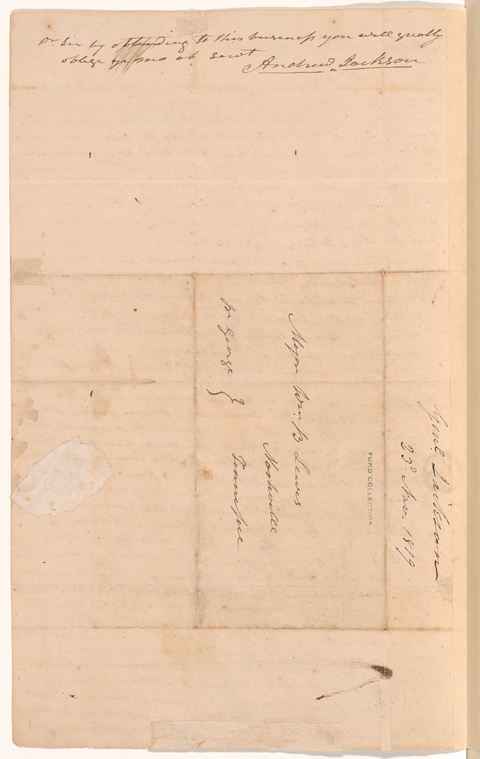 Dr Sir by attending to this business you will greatly
oblige yr mo ob servt
Andrew Jackson
Major Wm. B Lewis
Nashville
Tennessee
Mr George
Genl. Jackson
23d Nov. 1819
FORD COLLECTION